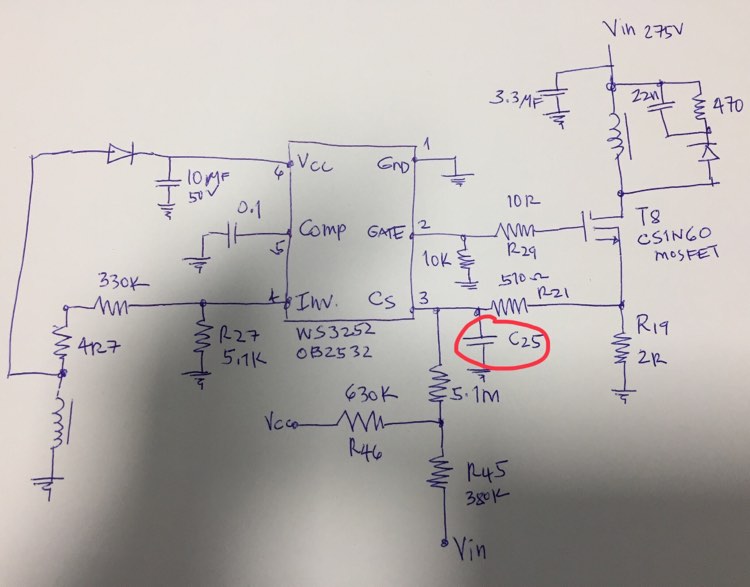 Vin 275V
3.3MF
22n
470
6
Vcc
GND
1
10MF
50V
0.1
5
Comp
GATE
2
10R
R29
T8
CS1N60
MOSFET
10K
330K
4
Inv.
CS
3
510Ω
R21
4R7
R27
5.1K
WS3252
OB2532
C25
R19
2R
630K
5.1M
Vcc
R46
R45
380K
Vin